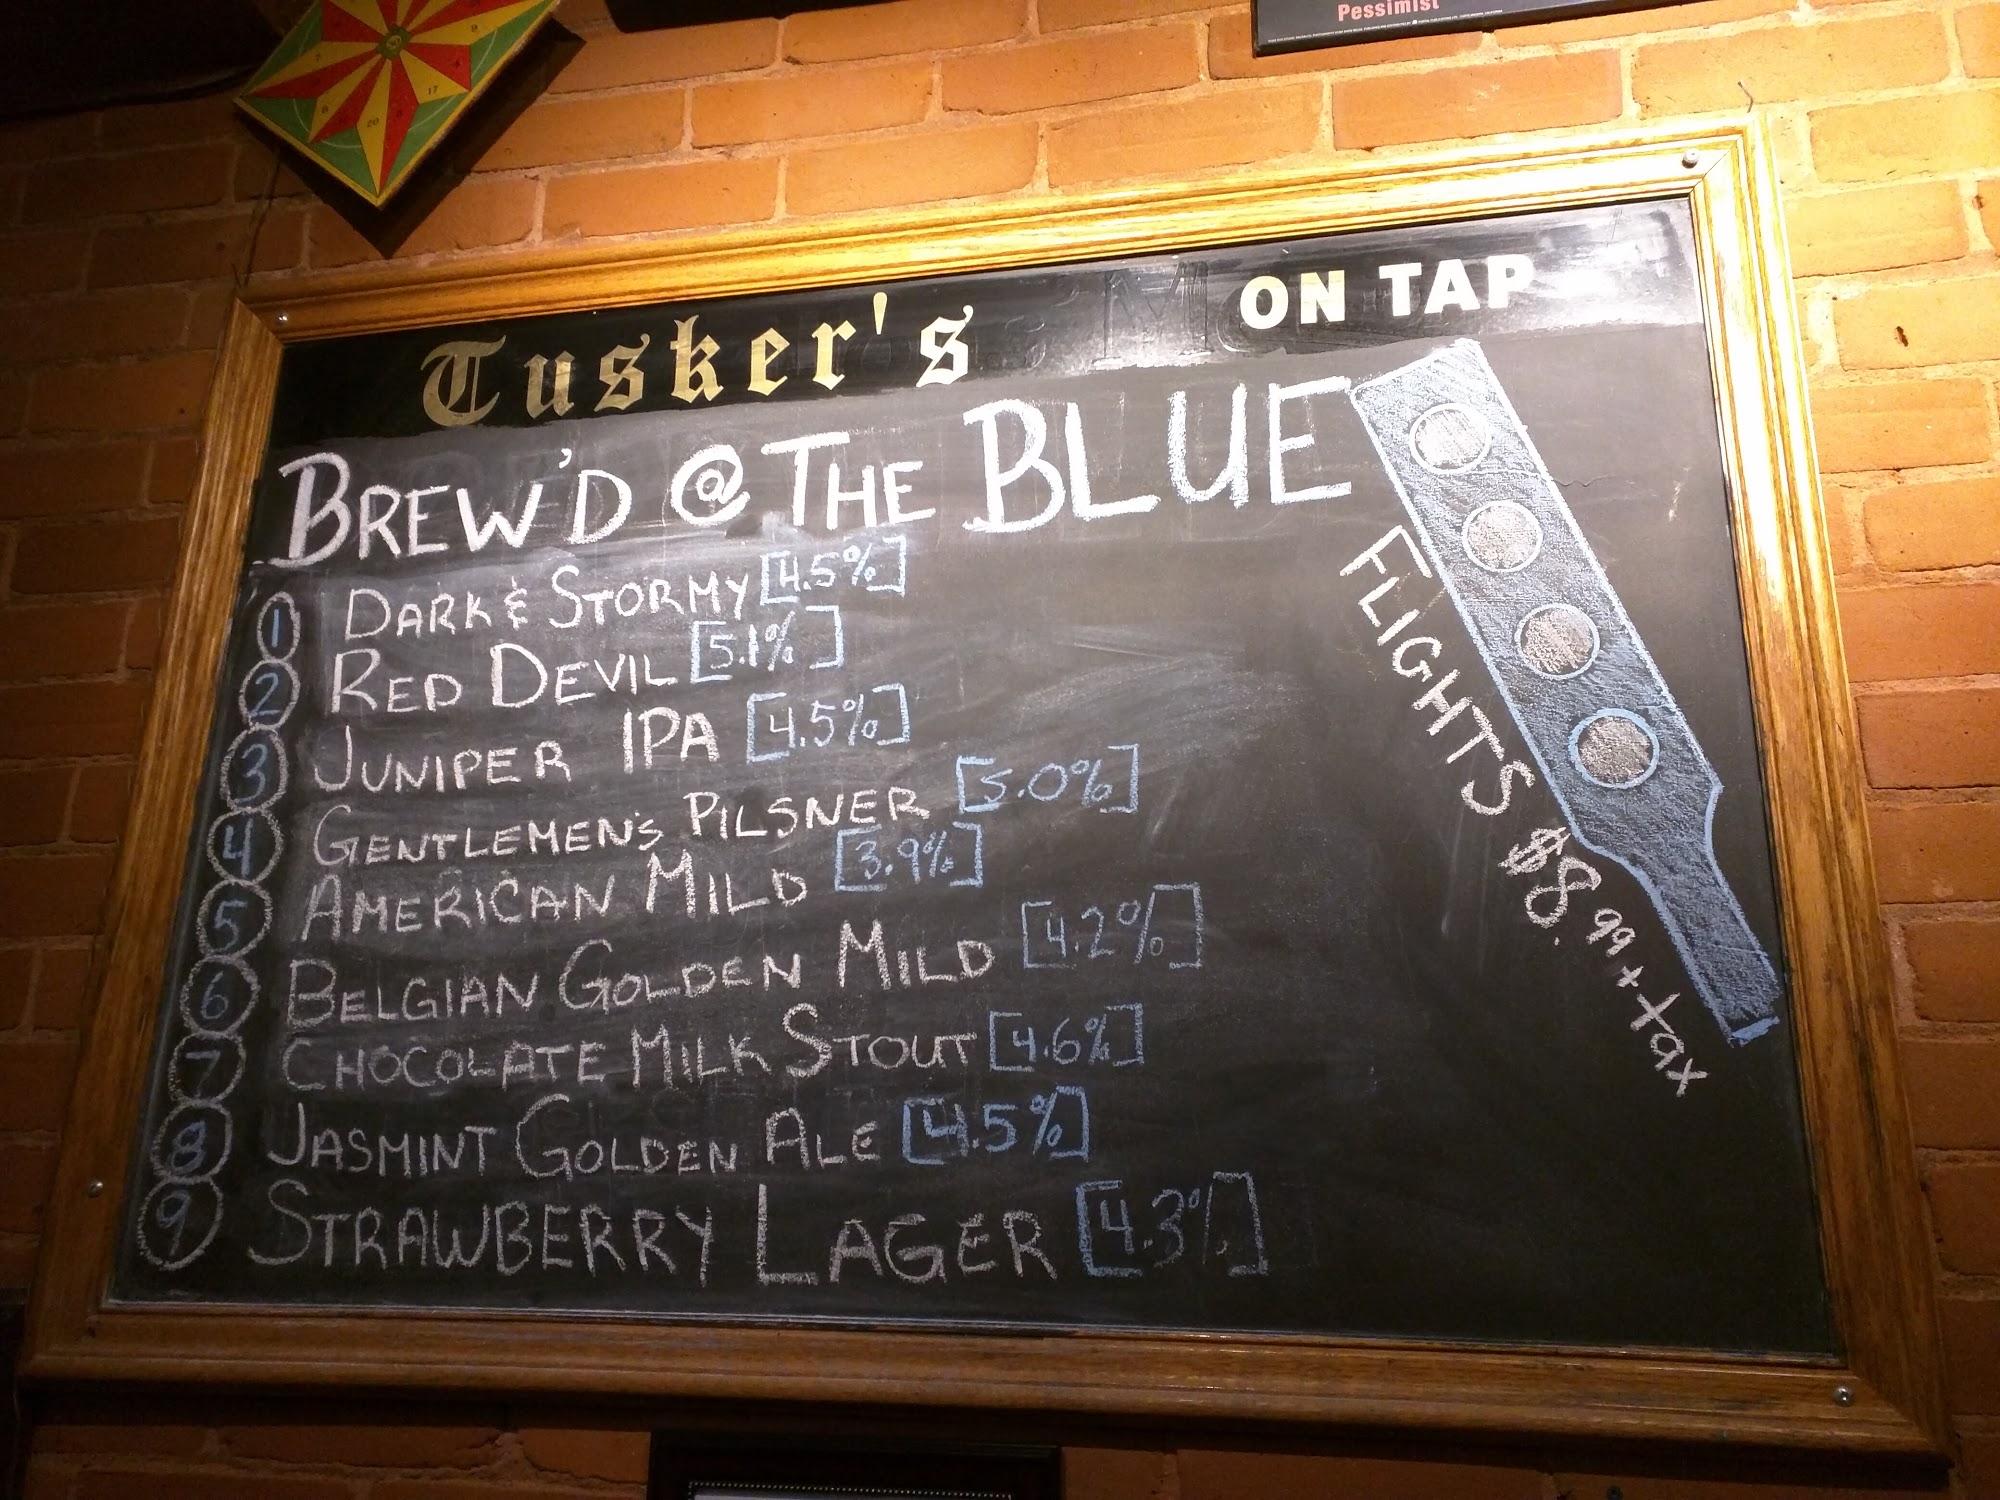 Pessimist
Tusker's ON TAP
BREW'D @ THE BLUE
1 DARK & STORMY [4.5%]
2 RED DEVIL [5.1%]
3 JUNIPER IPA [4.5%]
4 GENTLEMEN'S PILSNER [5.0%]
5 AMERICAN MILD [3.9%]
6 BELGIAN GOLDEN MILD [4.2%]
7 CHOCOLATE MILK STOUT [4.6%]
8 JASMINT GOLDEN ALE [4.5%]
9 STRAWBERRY LAGER [4.3%]
FLIGHTS $8.99 + tax